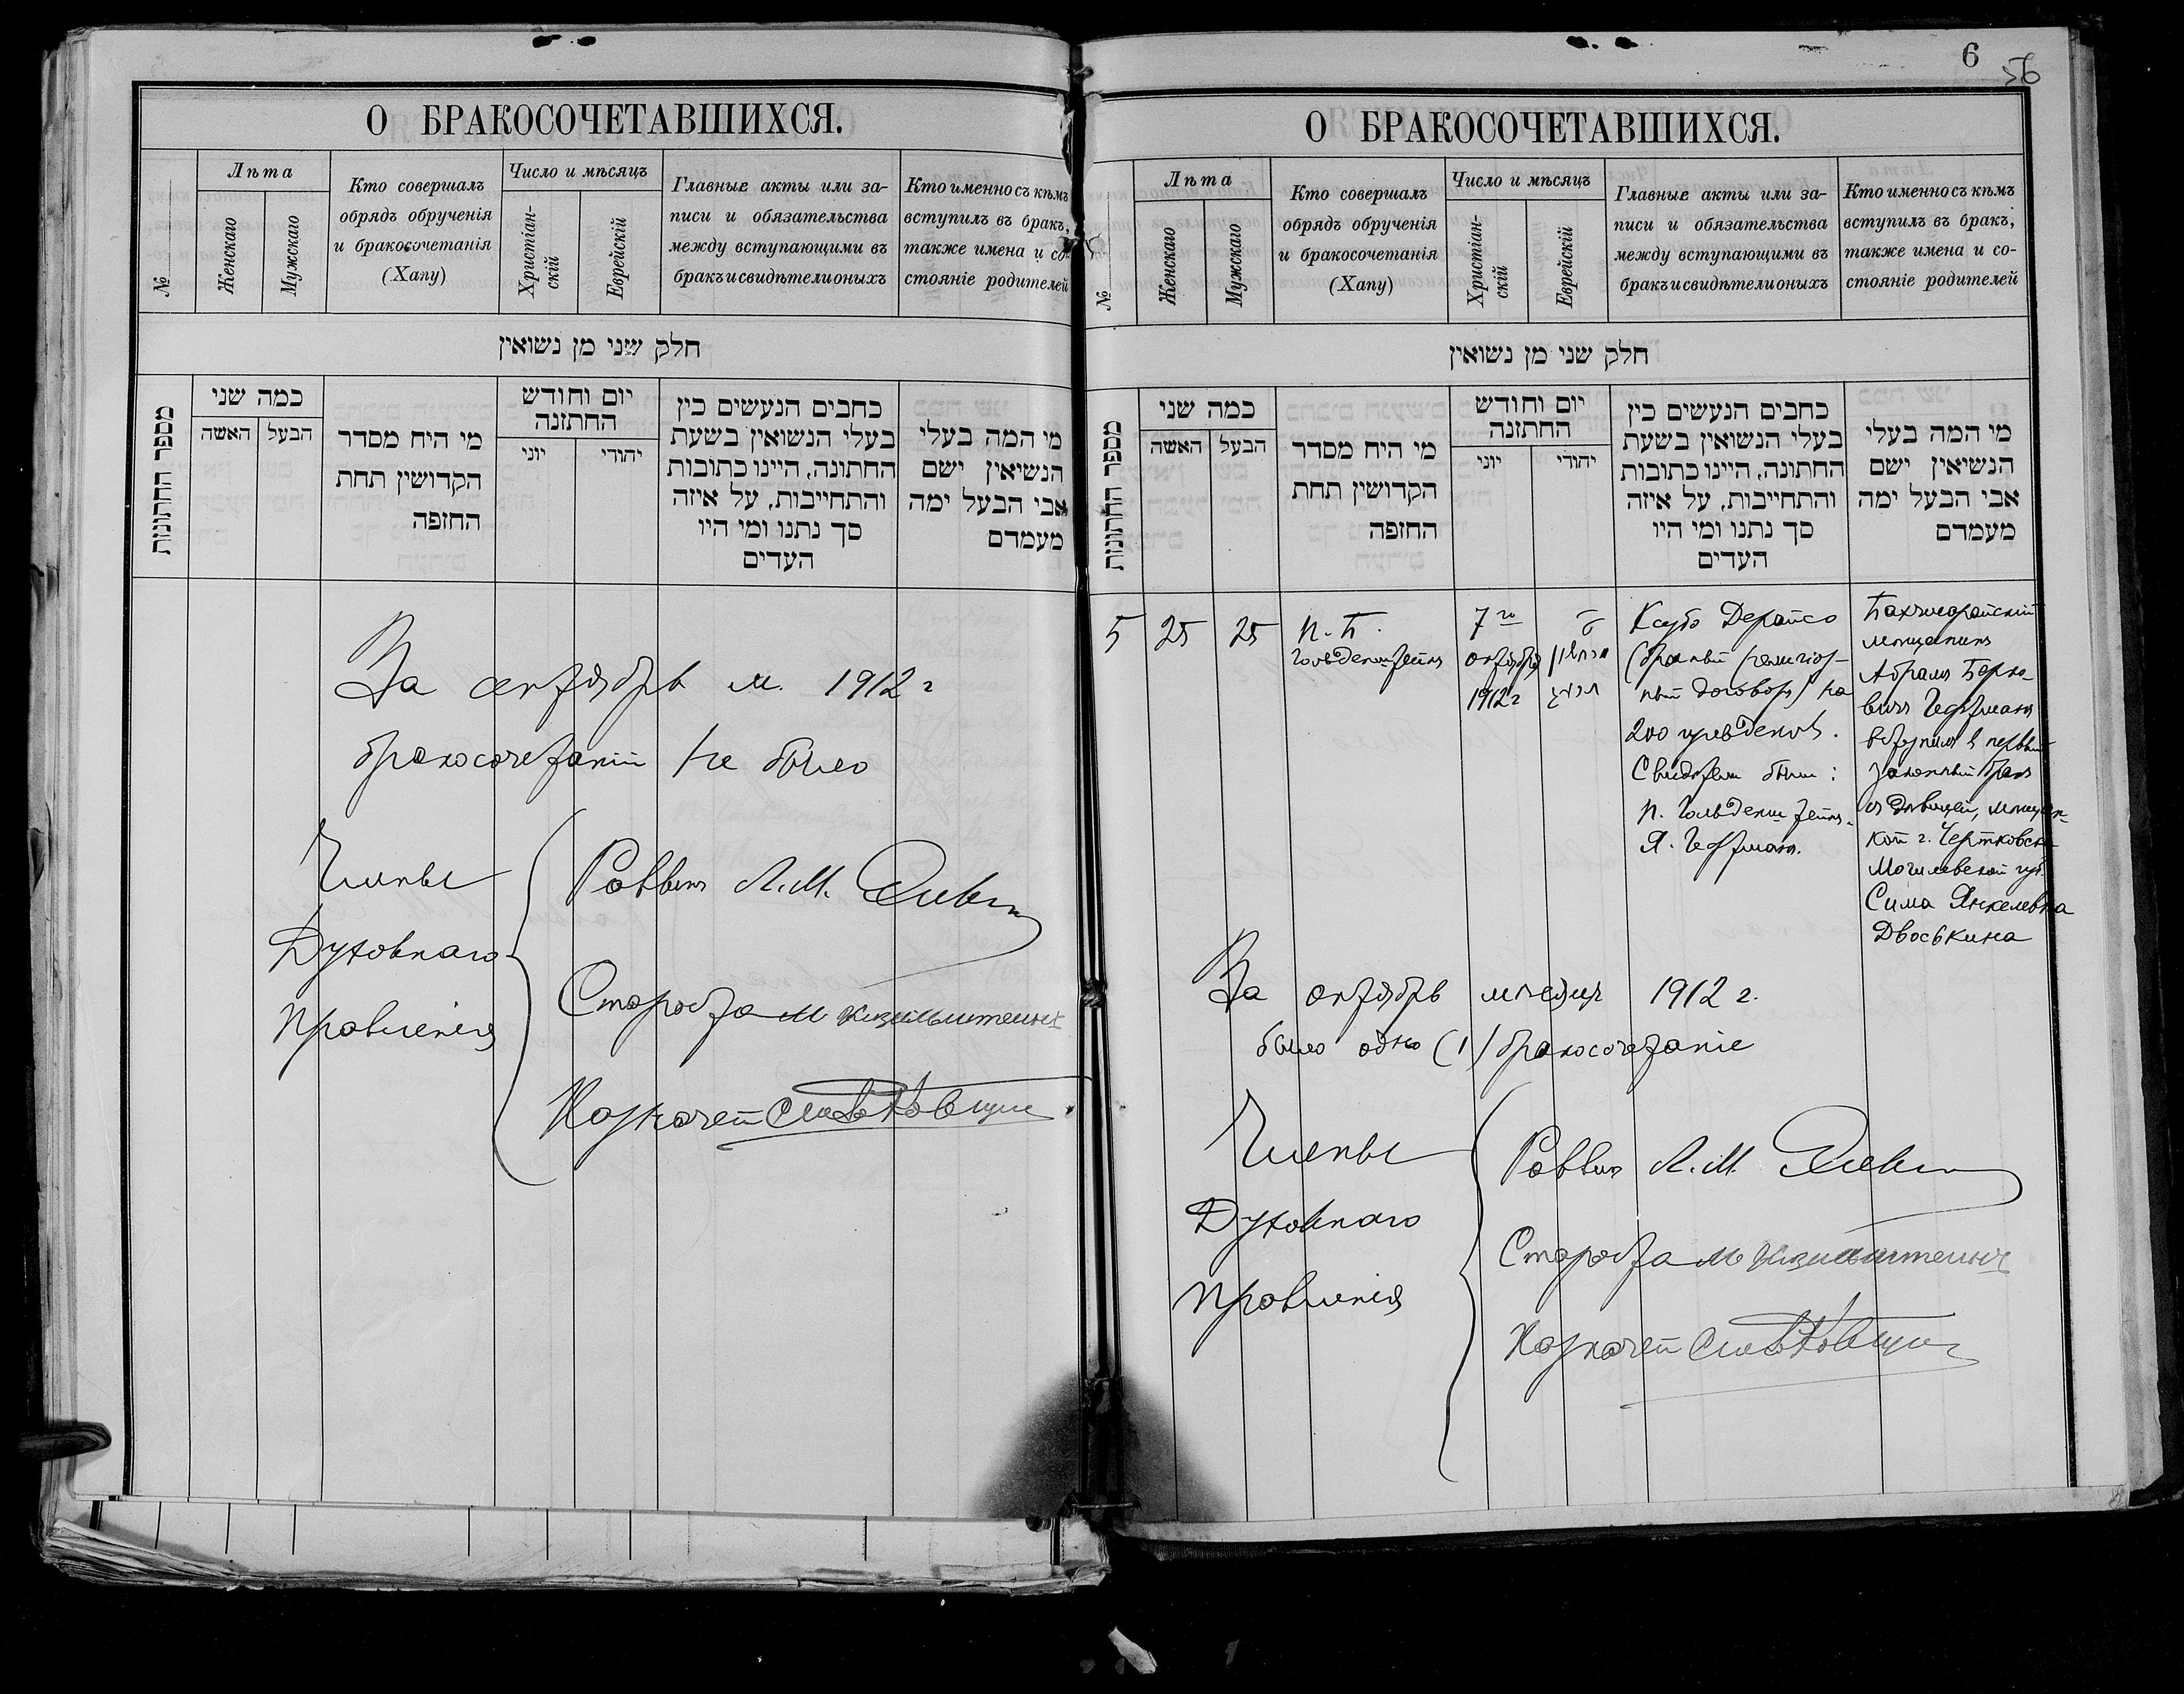 О БРАКОСОЧЕТАВШИХСЯ.
№
Лѣта
Женскаго
Мужскаго
Кто совершалъ
обрядъ обрученія
и бракосочетанія
(Хапу)
Число и мѣсяцъ
Христіан-
скій
Еврейскій
Главные акты или за-
писи и обязательства
между вступающими въ
бракъ и свидѣтели оныхъ
Кто именно съ кѣмъ
вступилъ въ бракъ,
также имена и со-
стояніе родителей
חלק שני מן נשואין
מספר החתונות
כמה שני
האשה
הבעל
מי היח מסדר
הקדושין תחת
החזפה
יום וחודש
החתזנה
יוני
יהודי
כחבים הנעשים כין
בעלי הנשואין בשעת
החתונה, היינו כתובות
והתחייבות, על איזה
סך נתנו ומי היו
העדים
מי המה בעלי
הנשיאין ישם
אבי הבעל ימה
מעמדם
За сентябрь м. 1912 г
бракосочетаній не было
Члены
Духовнаго
Правленія
Раввинъ Л. М.
Староста М
Казначей
6
56
О БРАКОСОЧЕТАВШИХСЯ.
№
Лѣта
Женскаго
Мужскаго
Кто совершалъ
обрядъ обрученія
и бракосочетанія
(Хапу)
Число и мѣсяцъ
Христіан-
скій
Еврейскій
Главные акты или за-
писи и обязательства
между вступающими въ
бракъ и свидѣтели оныхъ
Кто именно съ кѣмъ
вступилъ въ бракъ,
также имена и со-
стояніе родителей
חלק שני מן נשואין
מספר החתונות
כמה שני
האשה
הבעל
מי היח מסדר
הקדושין תחת
החזפה
יום וחודש
החתזנה
יוני
יהודי
כחבים הנעשים כין
בעלי הנשואין בשעת
החתונה, היינו כתובות
והתחייבות, על איזה
סך נתנו ומי היו
העדים
מי המה בעלי
הנשיאין ישם
אבי הבעל ימה
מעמדם
5
25
25
П. Б.
Гольденштейнъ
7го
октября
1912 г
Ксубо Дерайсо
(брачный религіоз-
ный договоръ) на
200 гульденовъ.
Свидѣтели были:
П. Гольденштейнъ.
Я. Гефтманъ.
Бахчисарайскій
мѣщанинъ
Абрамъ Берко-
вичъ Гефтманъ
вступилъ въ первый
законный бракъ
съ дѣвицей, мѣщан-
кой г.
Могилевской губ.
Сима Янкелевна
Двоськина
За октябрь мѣсяцъ 1912 г.
было одно (1) бракосочетаніе
Члены
Духовнаго
Правленія
Раввинъ Л. М.
Староста М
Казначей